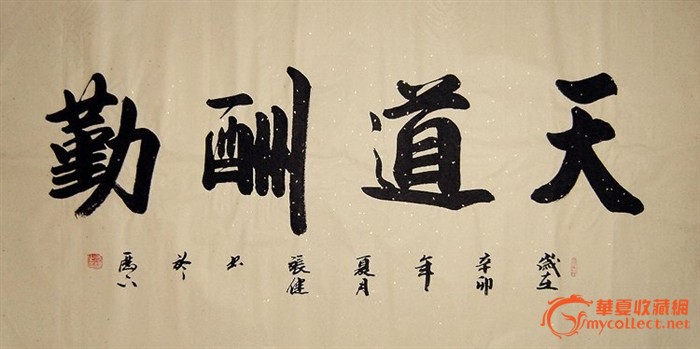 天道酬勤
歲在辛卯年夏月張健書於
華夏收藏网
mycollect.net